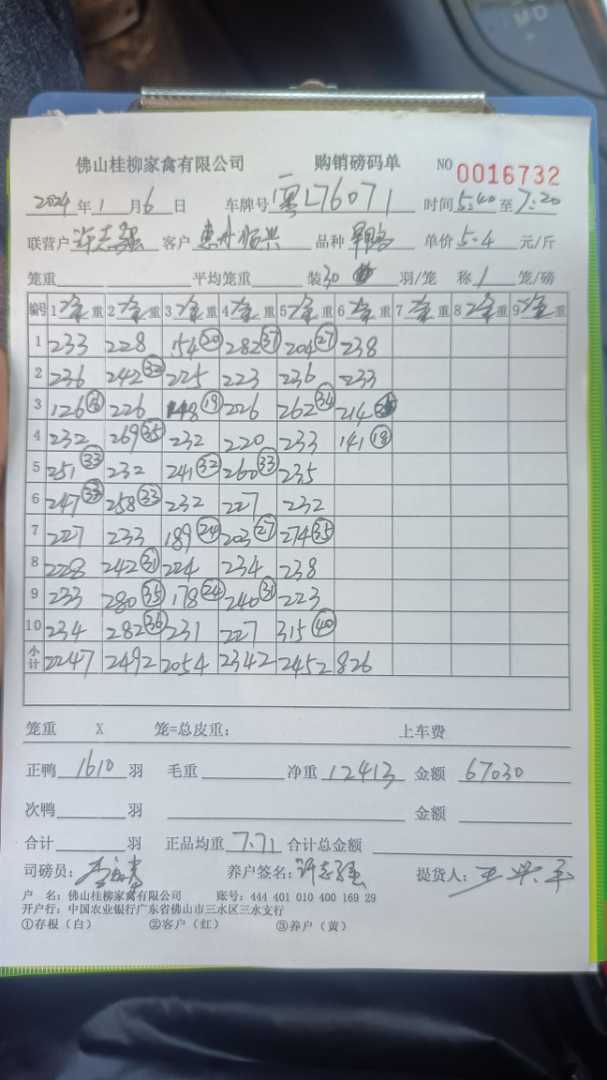 佛山桂柳家禽有限公司 购销磅码单 NO 0016732
2024年1月6日 车牌号 粤L76071 时间5:40至7:20
联营户 许志强 客户 惠州振兴 品种 单价5.4元/斤
笼重 平均笼重 装30羽/笼 称1笼/磅
编号 1 净重 2 净重 3 净重 4 净重 5 净重 6 净重 7 净重 8 净重 9 净重
1 233 228 154⑳ 282㊲ 204㉗ 238
2 236 242㉜ 225 223 236 233
3 126 226 148⑲ 226 262㉞ 214
4 232 269㉟ 232 220 233 141⑱
5 251㉝ 232 241㉜ 260㉝ 235
6 247㉝ 258㉝ 232 227 232
7 227 233 189㉔ 203㉗ 274㉟
8 228 242㉛ 224 234 238
9 233 280㉟ 178㉔ 240㉛ 223
10 234 282㊱ 231 227 315㊵
小计 2247 2492 2054 2342 2452 826
笼重 X 笼=总皮重: 上车费
正鸭 1610 羽 毛重 净重 12413 金额 67030
次鸭 羽 金额
合计 羽 正品均重 7.71 合计总金额
司磅员: 养户签名: 许志强 提货人:
户 名: 佛山桂柳家禽有限公司 账号: 444 401 010 400 169 29
开户行: 中国农业银行广东省佛山市三水区三水支行
①存根(白) ②客户(红) ③养户(黄)